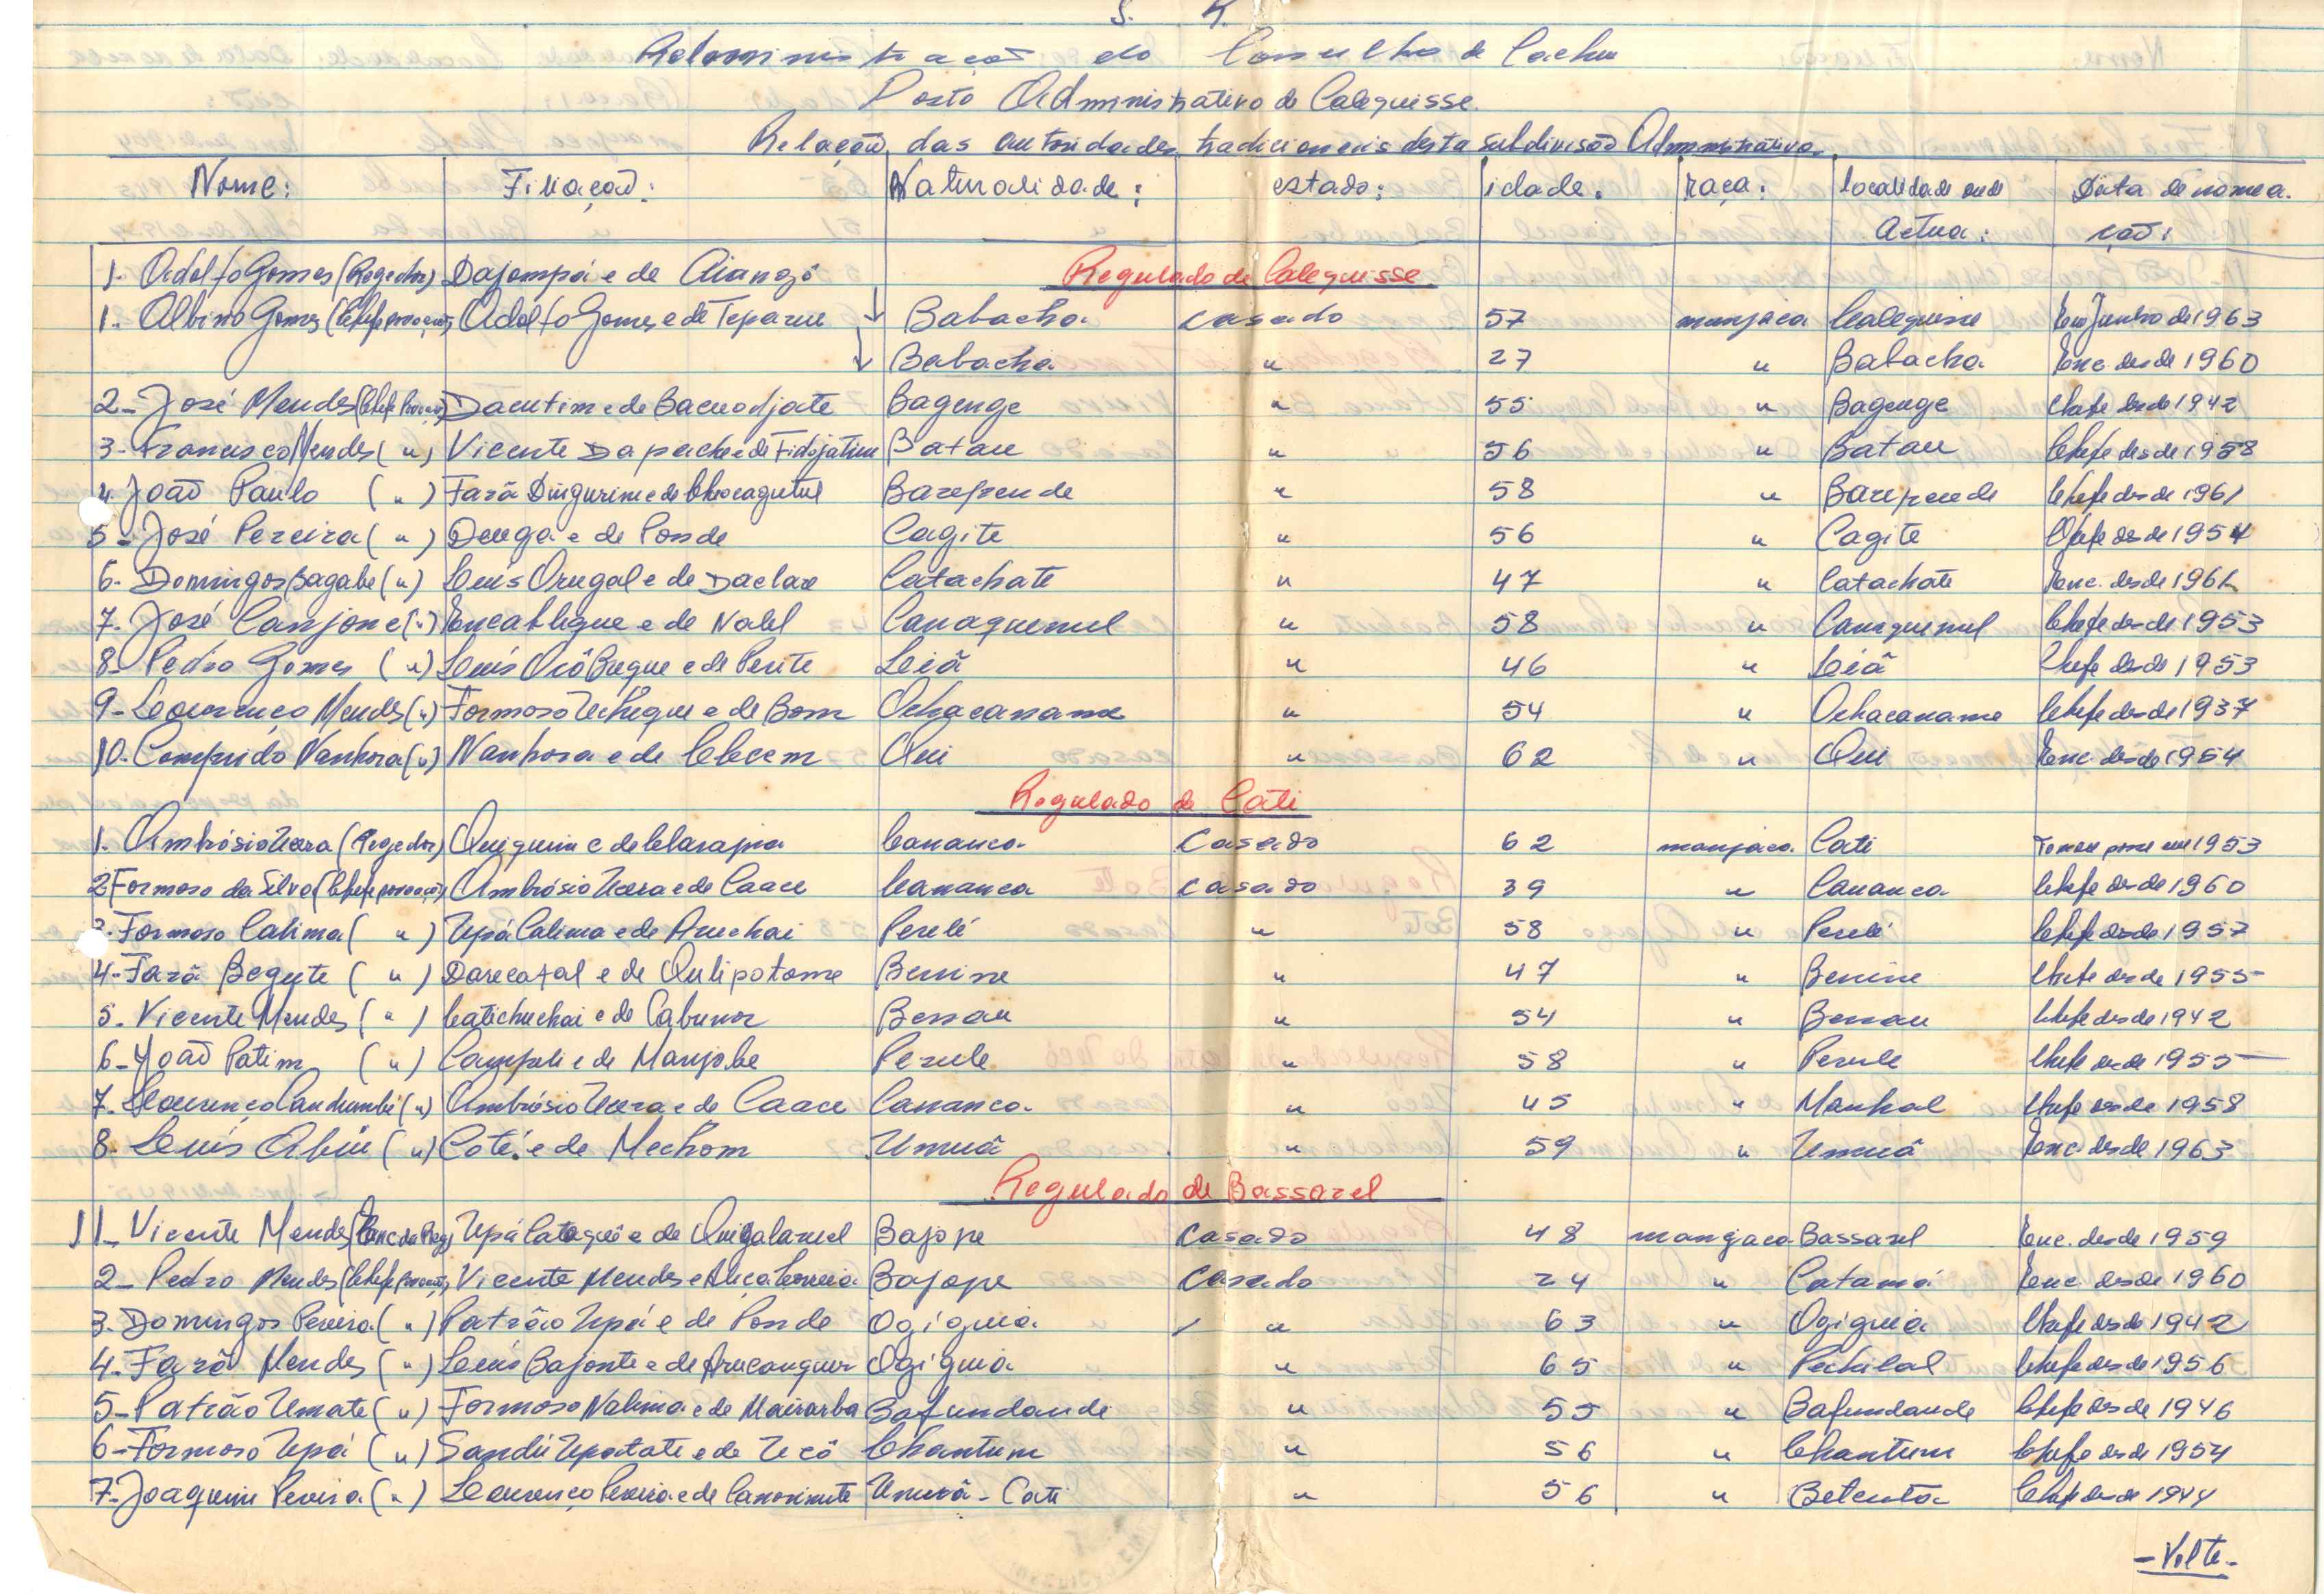 S. R.
Administração do Conselho de Cacheu
Posto Administrativo de Calequisse.
Relação das autoridades tradicionais desta subdivisão Administrativa.
Nome: Filiação: Naturalidade: estado: idade: raça: localidade onde Data de nomea-
Actua: ção:
1. Adolfo Gomes (Regedor) Dajompá e de Aiangô Regulado de Calequisse
1. Albino Gomes (Chefe povoação) Adolfo Gomes e de Teparue Babacha casado 57 manjaca Calequisse Em Junho de 1963
Babacha " 27 " Babacha Enc. desde 1960
2- José Mendes (Chefe Povoação) Dacutim e de Bacuodjate Bagenge " 55 " Bagenge Chefe desde 1942
3- Francisco Mendes ( " ) Vicente Dapache e de Batau " 56 " Batau Chefe desde 1958
4. João Paulo ( " ) Fará Dingurim e de Barepende " 58 " Barepende Chefe desde 1961
5- José Pereira ( " ) Denga e de Ponde Cagite " 56 " Cagite Chefe desde 1954
6- Domingos Bagabe ( " ) Luís Orugal e de Daclare Catachate " 47 " Catachate Enc. desde 1961
7. José Canjone ( " ) Encablique e de Nalel Canaquenul " 58 " Canaquenul Chefe desde 1953
8- Pedro Gomes ( " ) Luís Ocô Buque e de Perite Leiã " 46 " Leiã Chefe desde 1953
9- Lourenço Mendes ( " ) Formoso Ucheque e de Bom Ochacaname " 54 " Ochacaname Chefe desde 1937
10. Comprido Nanhora ( " ) Nanhora e de Checem Qui " 62 " Qui Enc. desde 1954
Regulado de Cati
1. Ambrósio Ucera (Regedor) Quiquim e de Clarapia Cananca Casado 62 manjaca Cati Tomou posse em 1953
2 Formoso da Silva (Chefe povoação) Ambrósio Ucera e de Caace Cananca casado 39 " Cananca Chefe desde 1960
3. Formoso Calima ( " ) Upá Calima e de Aruchai Perulé " 58 " Perulé Chefe desde 1957
4- Fará Begute ( " ) Darecatal e de Qulipotome Benine " 47 " Benine Chefe desde 1955
5. Vicente Mendes ( " ) Catichuchai e de Cabunor Bessau " 54 " Bessau Chefe desde 1942
6- João Patim ( " ) Campili e de Manjobe Perule " 58 " Perule Chefe desde 1955
7. Lourenço Canchumbé ( " ) Ambrósio Ucera e de Caace Cananca " 45 " Manhal Chefe desde 1958
8. Luís Abúi ( " ) Coté e de Mechom Umuã " 59 " Umuã Enc. desde 1963
Regulado de Bassarel
1- Vicente Mendes (Enc. da Reg.) Upá Cataguê e de Quigalamel Bajope Casado 48 mangaca Bassarel Enc. desde 1959
2- Pedro Mendes (Chefe povoação) Vicente Mendes e Aliça Correia Bajope Casado 24 " Catamá Enc desde 1960
3. Domingos Pereira ( " ) Patrão Upá e de Ponde Ogiguia " 63 " Ogiguia Chefe desde 1942
4- Fará Mendes ( " ) Luís Bajonte e de Arucanguer Ogiguia " 65 " Pechilal Chefe desde 1956
5- Patrão Umate ( " ) Formoso Nalima e de Mairarba Bafundande " 55 " Bafundande Chefe desde 1946
6- Formoso Upá ( " ) Sandú Upatate e de Ucô Chantum " 56 " Chantum Chefe desde 1954
7- Joaquim Pereira ( " ) Lourenço Pereira e de Canorimute Umuã - Cati " 56 " Betenta Chefe desde 1944
- Volte -